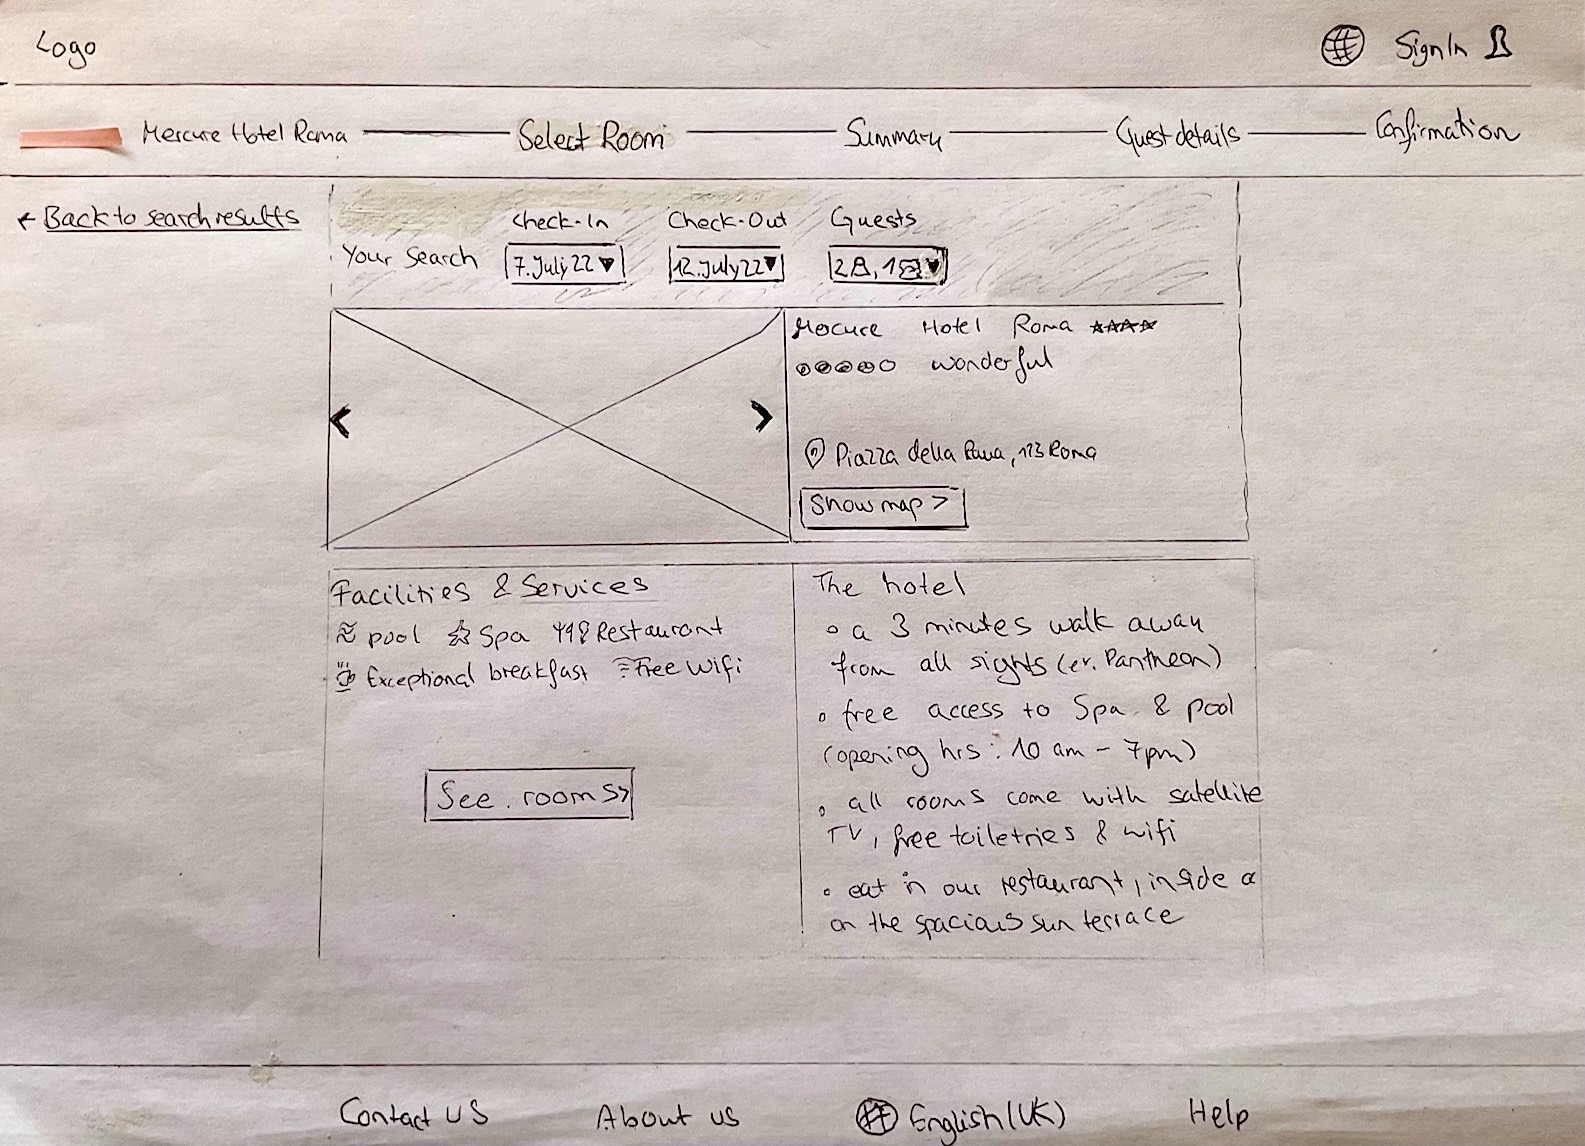 Logo
SignIn
Mercure Hotel Roma
Select Room
Summary
Guest details
Confirmation
← Back to search results
Check-In
Check-Out
Guests
Your Search
7.July 22
12.July 22
2, 1
Mercure Hotel Roma ★★★★
wonderful
Piazza della, 123 Roma
Show map >
Facilities & Services
pool Spa Restaurant
Exceptional breakfast Free Wifi
See rooms>
The hotel
◦ a 3 minutes walk away
from all sights (ex. Pantheon)
◦ free access to Spa & pool
(opening hrs: 10 am - 7pm)
◦ all rooms come with satellite
TV, free toiletries & wifi
◦ eat in our restaurant, inside or
on the spacious sun terrace
Contact US
About us
English (UK)
Help